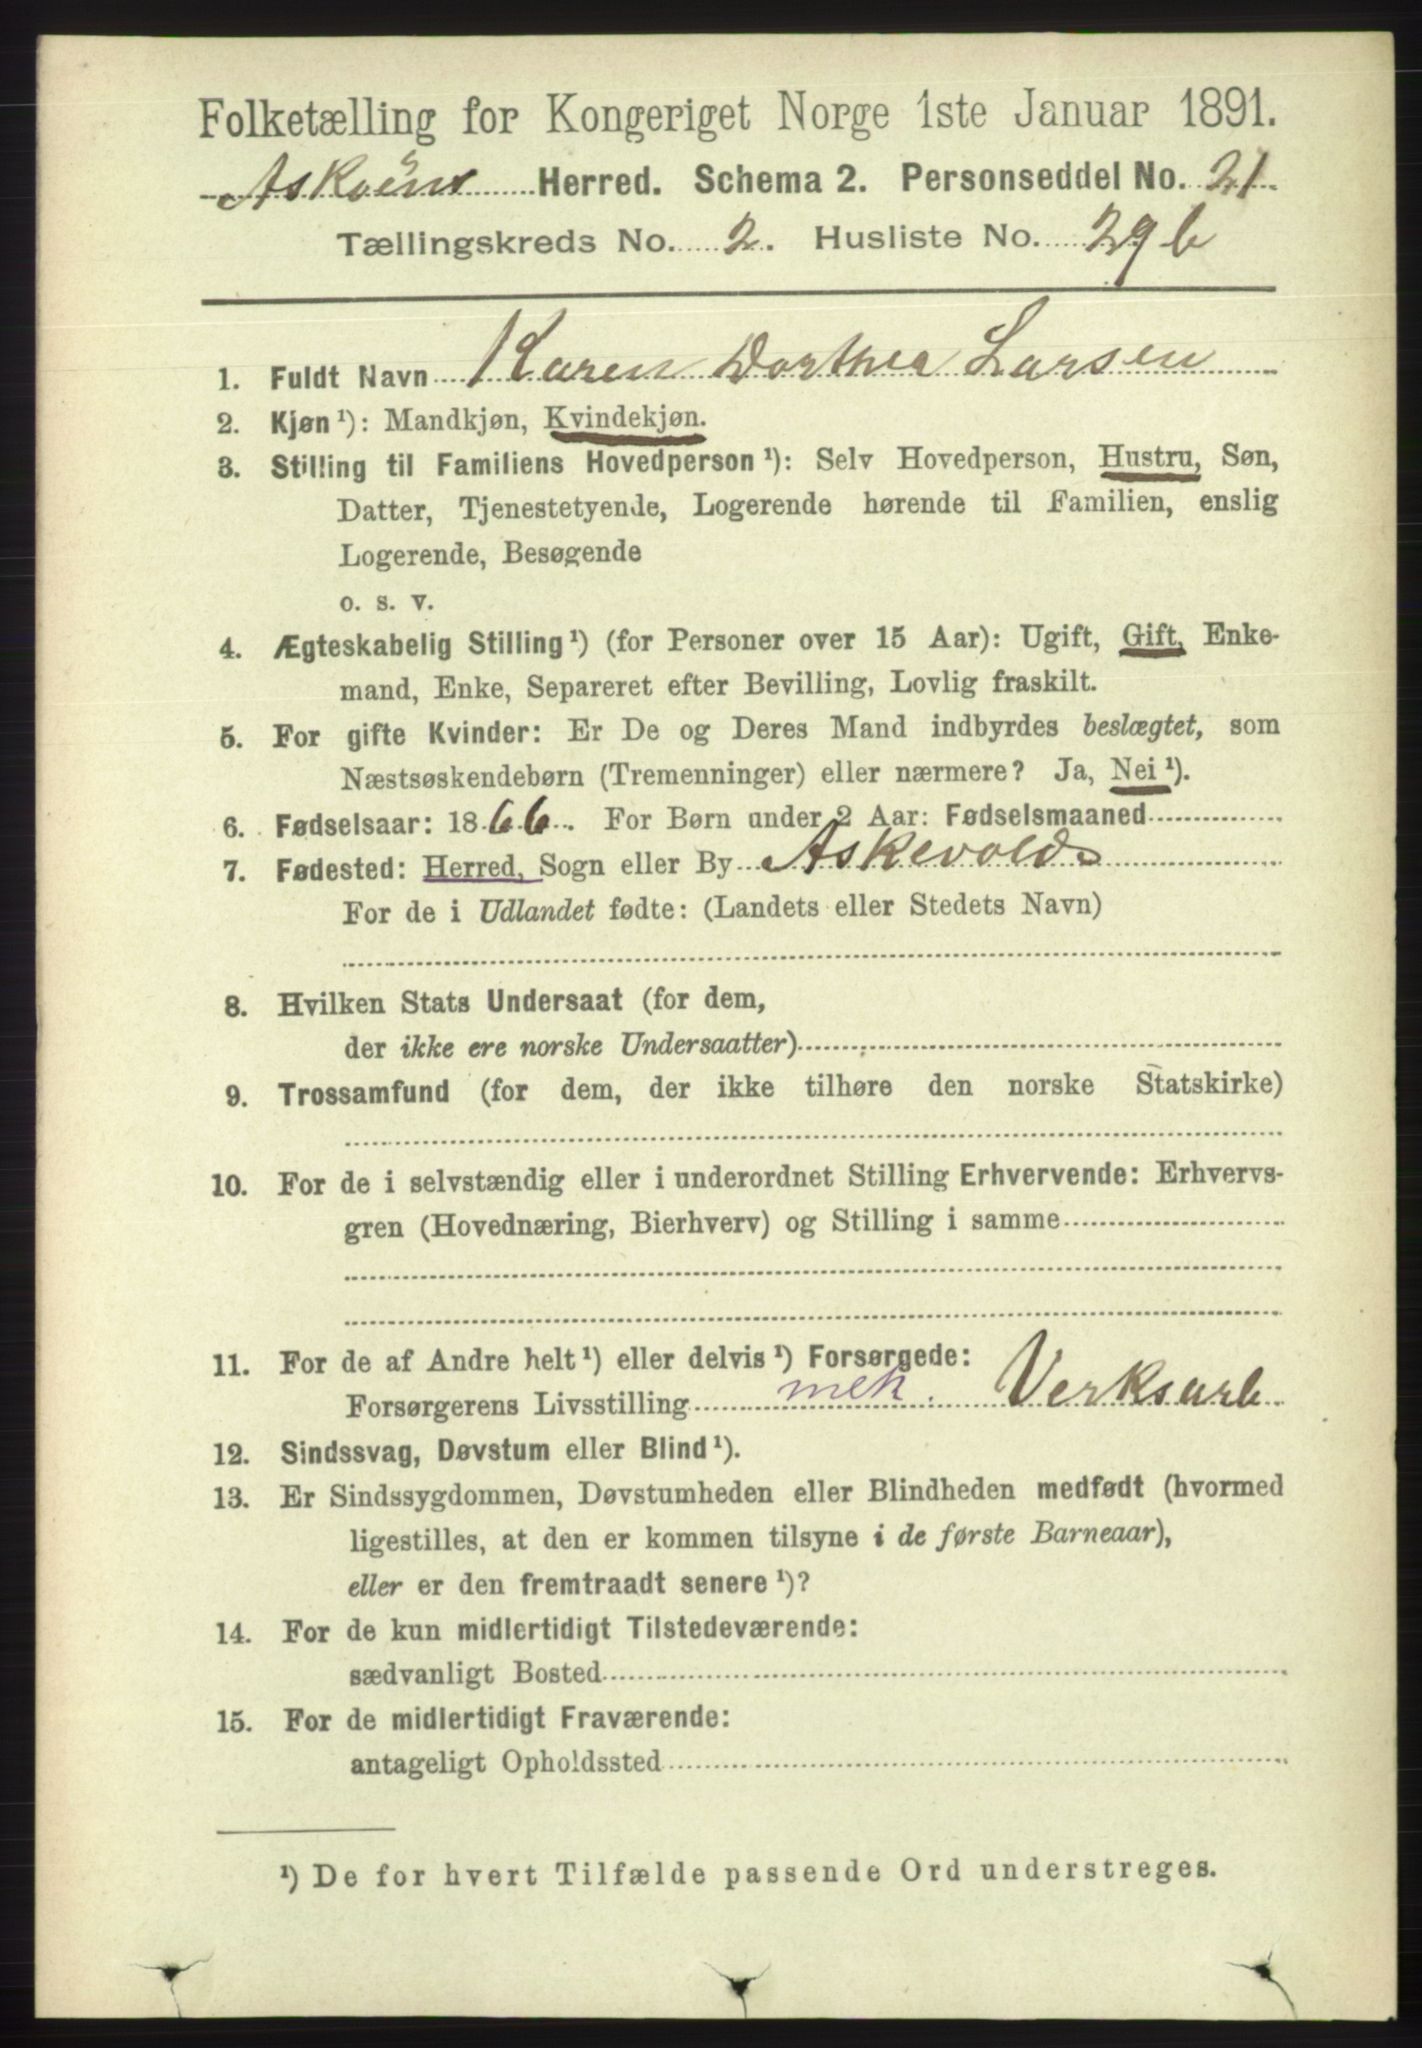 Folketælling for Kongeriget Norge 1ste Januar 1891.
Askøens Herred. Schema 2. Personseddel No. 21
Tællingskreds No. 2. Husliste No. 29 b
1. Fuldt Navn Karen Dorthea Larsen
2. Kjøn¹): Mandkjøn, Kvindekjøn.
3. Stilling til Familiens Hovedperson¹): Selv Hovedperson, Hustru, Søn,
Datter, Tjenestetyende, Logerende hørende til Familien, enslig
Logerende, Besøgende
o. s. v.
4. Ægteskabelig Stilling¹) (for Personer over 15 Aar): Ugift, Gift, Enke-
mand, Enke, Separeret efter Bevilling, Lovlig fraskilt.
5. For gifte Kvinder: Er De og Deres Mand indbyrdes beslægtet, som
Næstsøskendebørn (Tremenninger) eller nærmere? Ja, Nei¹).
6. Fødselsaar: 1866. For Børn under 2 Aar: Fødselsmaaned
7. Fødested: Herred, Sogn eller By Askevolds
For de i Udlandet fødte: (Landets eller Stedets Navn)
8. Hvilken Stats Undersaat (for dem,
der ikke ere norske Undersaatter)
9. Trossamfund (for dem, der ikke tilhøre den norske Statskirke)
10. For de i selvstændig eller i underordnet Stilling Erhvervende: Erhvervs-
gren (Hovednæring, Bierhverv) og Stilling i samme
11. For de af Andre helt¹) eller delvis¹) Forsørgede:
Forsørgerens Livsstilling mek. Verksarb
12. Sindssvag, Døvstum eller Blind¹).
13. Er Sindssygdommen, Døvstumheden eller Blindheden medfødt (hvormed
ligestilles, at den er kommen tilsyne i de første Barneaar),
eller er den fremtraadt senere¹)?
14. For de kun midlertidigt Tilstedeværende:
sædvanligt Bosted
15. For de midlertidigt Fraværende:
antageligt Opholdssted
¹) De for hvert Tilfælde passende Ord understreges.